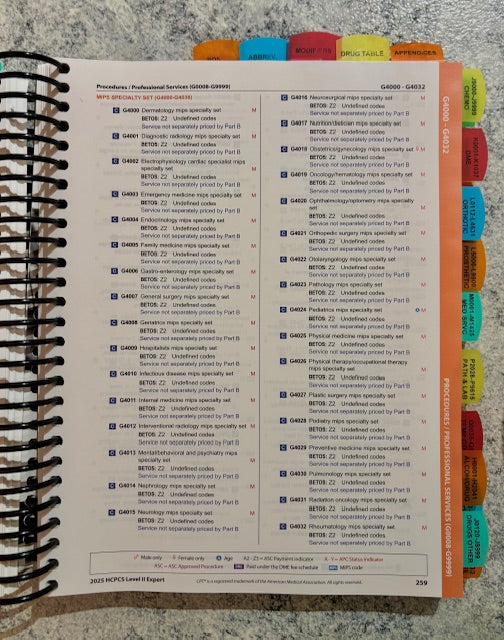 ABBREV.
MODIFIERS
DRUG TABLE
APPENDICES
Procedures / Professional Services (G0008-G9999)
G4000 - G4032
MIPS SPECIALTY SET (G4000-G4038)
C G4000 Dermatology mips specialty set M
BETOS: Z2 Undefined codes
Service not separately priced by Part B
C G4001 Diagnostic radiology mips specialty set M
BETOS: Z2 Undefined codes
Service not separately priced by Part B
C G4002 Electrophysiology cardiac specialist mips
specialty set M
BETOS: Z2 Undefined codes
Service not separately priced by Part B
C G4003 Emergency medicine mips specialty set M
BETOS: Z2 Undefined codes
Service not separately priced by Part B
C G4004 Endocrinology mips specialty set M
BETOS: Z2 Undefined codes
Service not separately priced by Part B
C G4005 Family medicine mips specialty set M
BETOS: Z2 Undefined codes
Service not separately priced by Part B
C G4006 Gastro-enterology mips specialty set M
BETOS: Z2 Undefined codes
Service not separately priced by Part B
C G4007 General surgery mips specialty set M
BETOS: Z2 Undefined codes
Service not separately priced by Part B
C G4008 Geriatrics mips specialty set M
BETOS: Z2 Undefined codes
Service not separately priced by Part B
C G4009 Hospitalists mips specialty set M
BETOS: Z2 Undefined codes
Service not separately priced by Part B
C G4010 Infectious disease mips specialty set M
BETOS: Z2 Undefined codes
Service not separately priced by Part B
C G4011 Internal medicine mips specialty set M
BETOS: Z2 Undefined codes
Service not separately priced by Part B
C G4012 Interventional radiology mips specialty set M
BETOS: Z2 Undefined codes
Service not separately priced by Part B
C G4013 Mental/behavioral and psychiatry mips
specialty set M
BETOS: Z2 Undefined codes
Service not separately priced by Part B
C G4014 Nephrology mips specialty set M
BETOS: Z2 Undefined codes
Service not separately priced by Part B
C G4015 Neurology mips specialty set M
BETOS: Z2 Undefined codes
Service not separately priced by Part B
C G4016 Neurosurgical mips specialty set M
BETOS: Z2 Undefined codes
Service not separately priced by Part B
C G4017 Nutrition/dietician mips specialty set M
BETOS: Z2 Undefined codes
Service not separately priced by Part B
C G4018 Obstetrics/gynecology mips specialty set ♀ M
BETOS: Z2 Undefined codes
Service not separately priced by Part B
C G4019 Oncology/hematology mips specialty set M
BETOS: Z2 Undefined codes
Service not separately priced by Part B
C G4020 Ophthalmology/optometry mips specialty
set M
BETOS: Z2 Undefined codes
Service not separately priced by Part B
C G4021 Orthopedic surgery mips specialty set M
BETOS: Z2 Undefined codes
Service not separately priced by Part B
C G4022 Otolaryngology mips specialty set M
BETOS: Z2 Undefined codes
Service not separately priced by Part B
C G4023 Pathology mips specialty set M
BETOS: Z2 Undefined codes
Service not separately priced by Part B
C G4024 Pediatrics mips specialty set M
BETOS: Z2 Undefined codes
Service not separately priced by Part B
C G4025 Physical medicine mips specialty set M
BETOS: Z2 Undefined codes
Service not separately priced by Part B
C G4026 Physical therapy/occupational therapy
mips specialty set M
BETOS: Z2 Undefined codes
Service not separately priced by Part B
C G4027 Plastic surgery mips specialty set M
BETOS: Z2 Undefined codes
Service not separately priced by Part B
C G4028 Podiatry mips specialty set M
BETOS: Z2 Undefined codes
Service not separately priced by Part B
C G4029 Preventive medicine mips specialty set M
BETOS: Z2 Undefined codes
Service not separately priced by Part B
C G4030 Pulmonology mips specialty set M
BETOS: Z2 Undefined codes
Service not separately priced by Part B
C G4031 Radiation oncology mips specialty set M
BETOS: Z2 Undefined codes
Service not separately priced by Part B
C G4032 Rheumatology mips specialty set M
BETOS: Z2 Undefined codes
Service not separately priced by Part B
♂ Male only ♀ Female only Age A2 - Z3 = ASC Payment indicator A - Y = APC Status Indicator
ASC = ASC Approved Procedure Paid under the DME fee schedule MIPS code
2025 HCPCS Level II Expert
CPT® is a registered trademark of the American Medical Association. All rights reserved.
259
G4000 - G4032
PROCEDURES / PROFESSIONAL SERVICES (G0008-G9999)
CHEMO
DME
ORTHOTIC
PROSTHETIC
MED SRVC
PATH & LAB
DRUGS OTHER